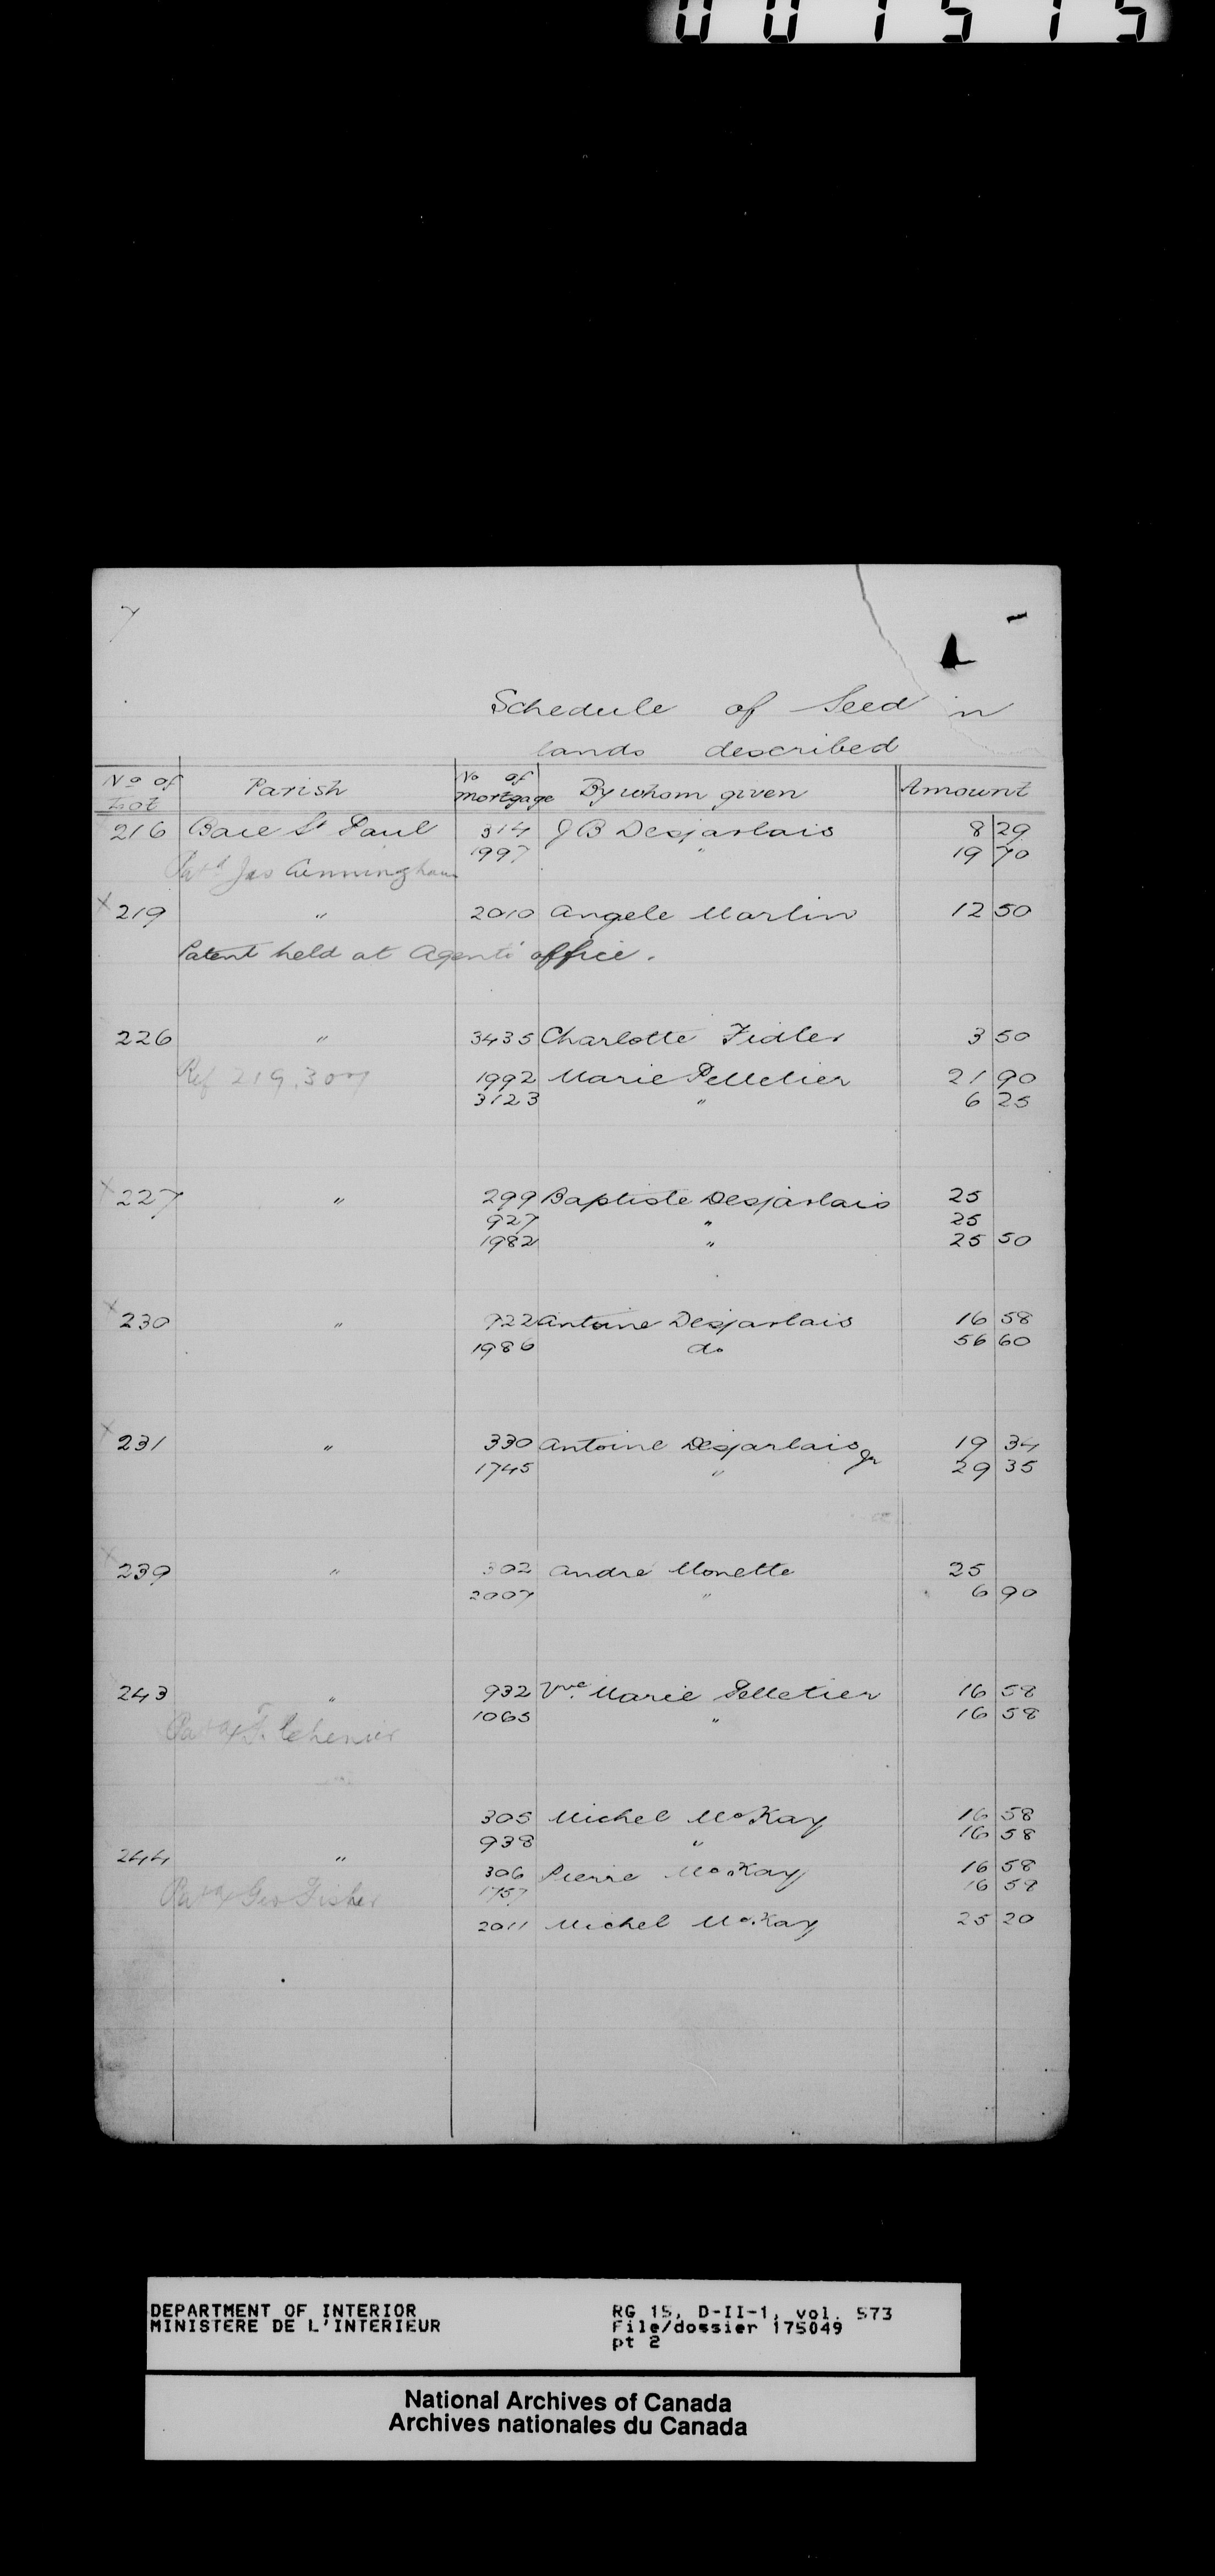 001515
7
Schedule of Seed in
lands described
No of Lot Parish No of Mortgage By whom given Amount
216 Baie St Paul 314 J B Desjarlais 8 29
1997 " 19 70
Patd Jas Cunningham
X 219 " 2010 Angele Martin 12 50
Patent held at Agents' office.
226 " 3435 Charlotte Fidler 3 50
Ref 219,307 1992 Marie Pelletier 21 90
3123 " 6 25
X 227 " 299 Baptiste Desjarlais 25
927 " 25
1982 " 25 50
X 230 " 922 Antoine Desjarlais 16 58
1986 do 56 60
X 231 " 330 Antoine Desjarlais Jr 19 34
1745 " 29 35
X 239 " 302 Andre Monette 25
2007 " 6 90
243 " 932 Vve Marie Pelletier 16 58
1065 " 16 58
305 Michel McKay 16 58
938 " 16 58
244 "
306 Pierre McKay 16 58
Geo Fisher 1757 16 58
2011 Michel McKay 25 20
DEPARTMENT OF INTERIOR
MINISTERE DE L'INTERIEUR
RG 15, D-II-1, vol. 573
File/dossier 175049
pt 2
National Archives of Canada
Archives nationales du Canada